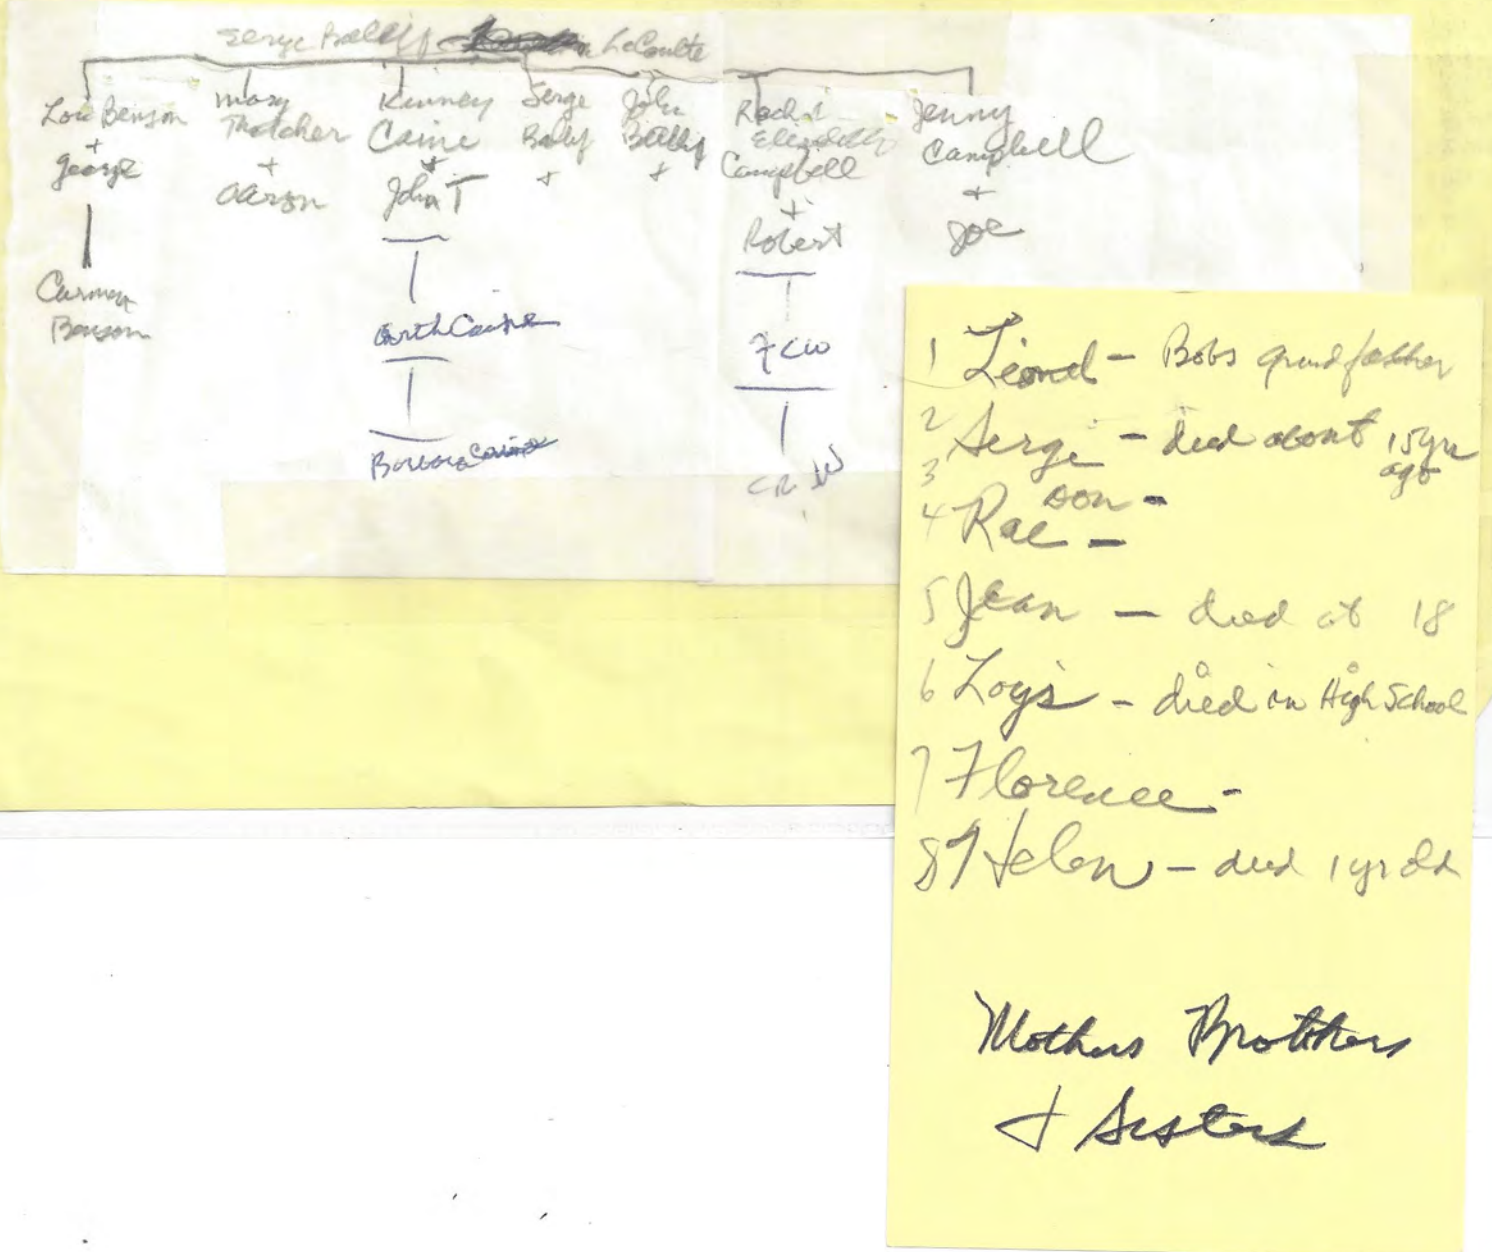 Serge LeCoulte
Lou Benson
+
George
Carmen
Benson
Mary
Thatcher
+
Aaron
Kinney
Caine
+
John T
Caine
Barbara Caine
Serge
+
John
+
Rachel
Elizabeth
Campbell
+
Robert
FCW
CRW
Jenny
Campbell
+
Joe
1 Lionel - Bobs grandfather
2 Serge - died about 15yrs
ago
3 son -
4 Rae -
5 Jean - died at 18
6 Loys - died in High School
7 Florence -
8 Helen - died 1 yr old
Mothers Brothers
+ Sisters